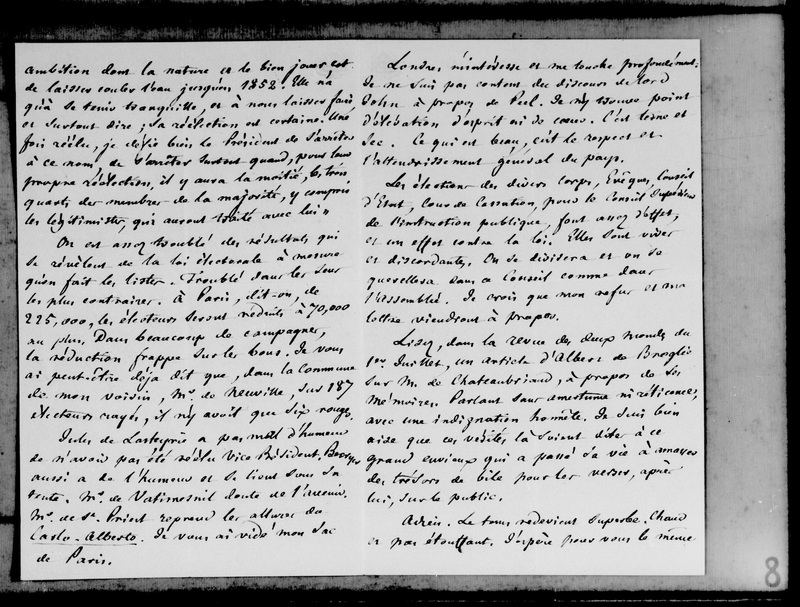 ambition dont la nature et le bien jouer est
de laisser couler l'eau jusqu'en 1852. Elle n'a
qu'à se tenir tranquille, et à nous laisser faire
et surtout dire, sa réélection est certaine. Une
fois réélu, je défie bien le Président de s'arrêter
à ce nom, de s'arrêter surtout quand, pour leur
propre réélection, il y aura la moitié, les trois
quarts des membres de la majorité, y compris
les légitimistes, qui auront traité avec lui »
On est assez troublé des résultats qui
se révèlent de la loi électorale à mesure
qu'on fait les listes. Troublé dans les sens
les plus contraires. À Paris, dit-on, de
225,000, les électeurs seront réduits à 70,000
au plus. Dans beaucoup de campagnes,
la réduction frappe sur les bons. Je vous
ai peut-être déjà dit que, dans la Commune
de mon voisin, Mr. de Neuville, sur 187
électeurs rayés, il n'y avait que six rouges.
Jules de Lasteyrie a pas mal d'humeur
de n'avoir pas été réélu Vice Président. Berryer
aussi a de l'humeur et se tient sous sa
tente. Mr. de Vatimesnil doute de l'avenir.
Mr. de St. Priest reprend les allures du
Carlo-Alberto. Je vous ai vidé mon sac
de Paris.
Londres m'intéresse et me touche profondément.
Je ne suis pas content du discours de lord
John à propos de Peel. Je n'y trouve point
d'élévation d'esprit ni de cœur. C'est terne et
sec. Ce qui est beau, c'est le respect et
l'attendrissement général du pays.
Les élections des divers corps, Evêques, Conseil
d'Etat, Cour de Cassation, pour le Conseil Supérieur
de l'instruction publique, font assez d'effet,
et un effet contre la loi. Elles sont vives
et discordantes. On se divisera et on se
querellera dans ce Conseil comme dans
l'assemblée. Je crois que mon refus et ma
lettre viendront à propos.
Lisez, dans la revue des deux Mondes du
1er Juillet, un article d'Albert de Broglie
sur M. de Chateaubriand, à propos de ses
Mémoires. Parlant sans amertume ni réticence,
avec une indignation honnête. Je suis bien
aise que ces vérités là soient dites à ce
grand envieux qui a passé sa vie à amasser
des trésors de bile pour les verser, après
lui, sur le public.
Adieu. Le tems redevient superbe. Chaud
et pas étouffant. J'espère pour vous le même
8